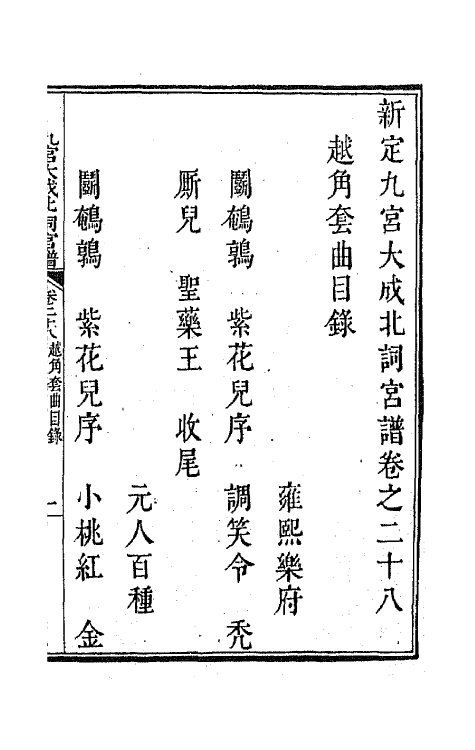 新定九宮大成北詞宮譜卷之二十八
越角套曲目錄
雍熙樂府
鬭鵪鶉 紫花兒序 調笑令 禿
厮兒 聖藥王 收尾
元人百種
鬭鵪鶉 紫花兒序 小桃紅 金
九宮大成北詞宮譜 卷二十八 越角套曲目錄 一